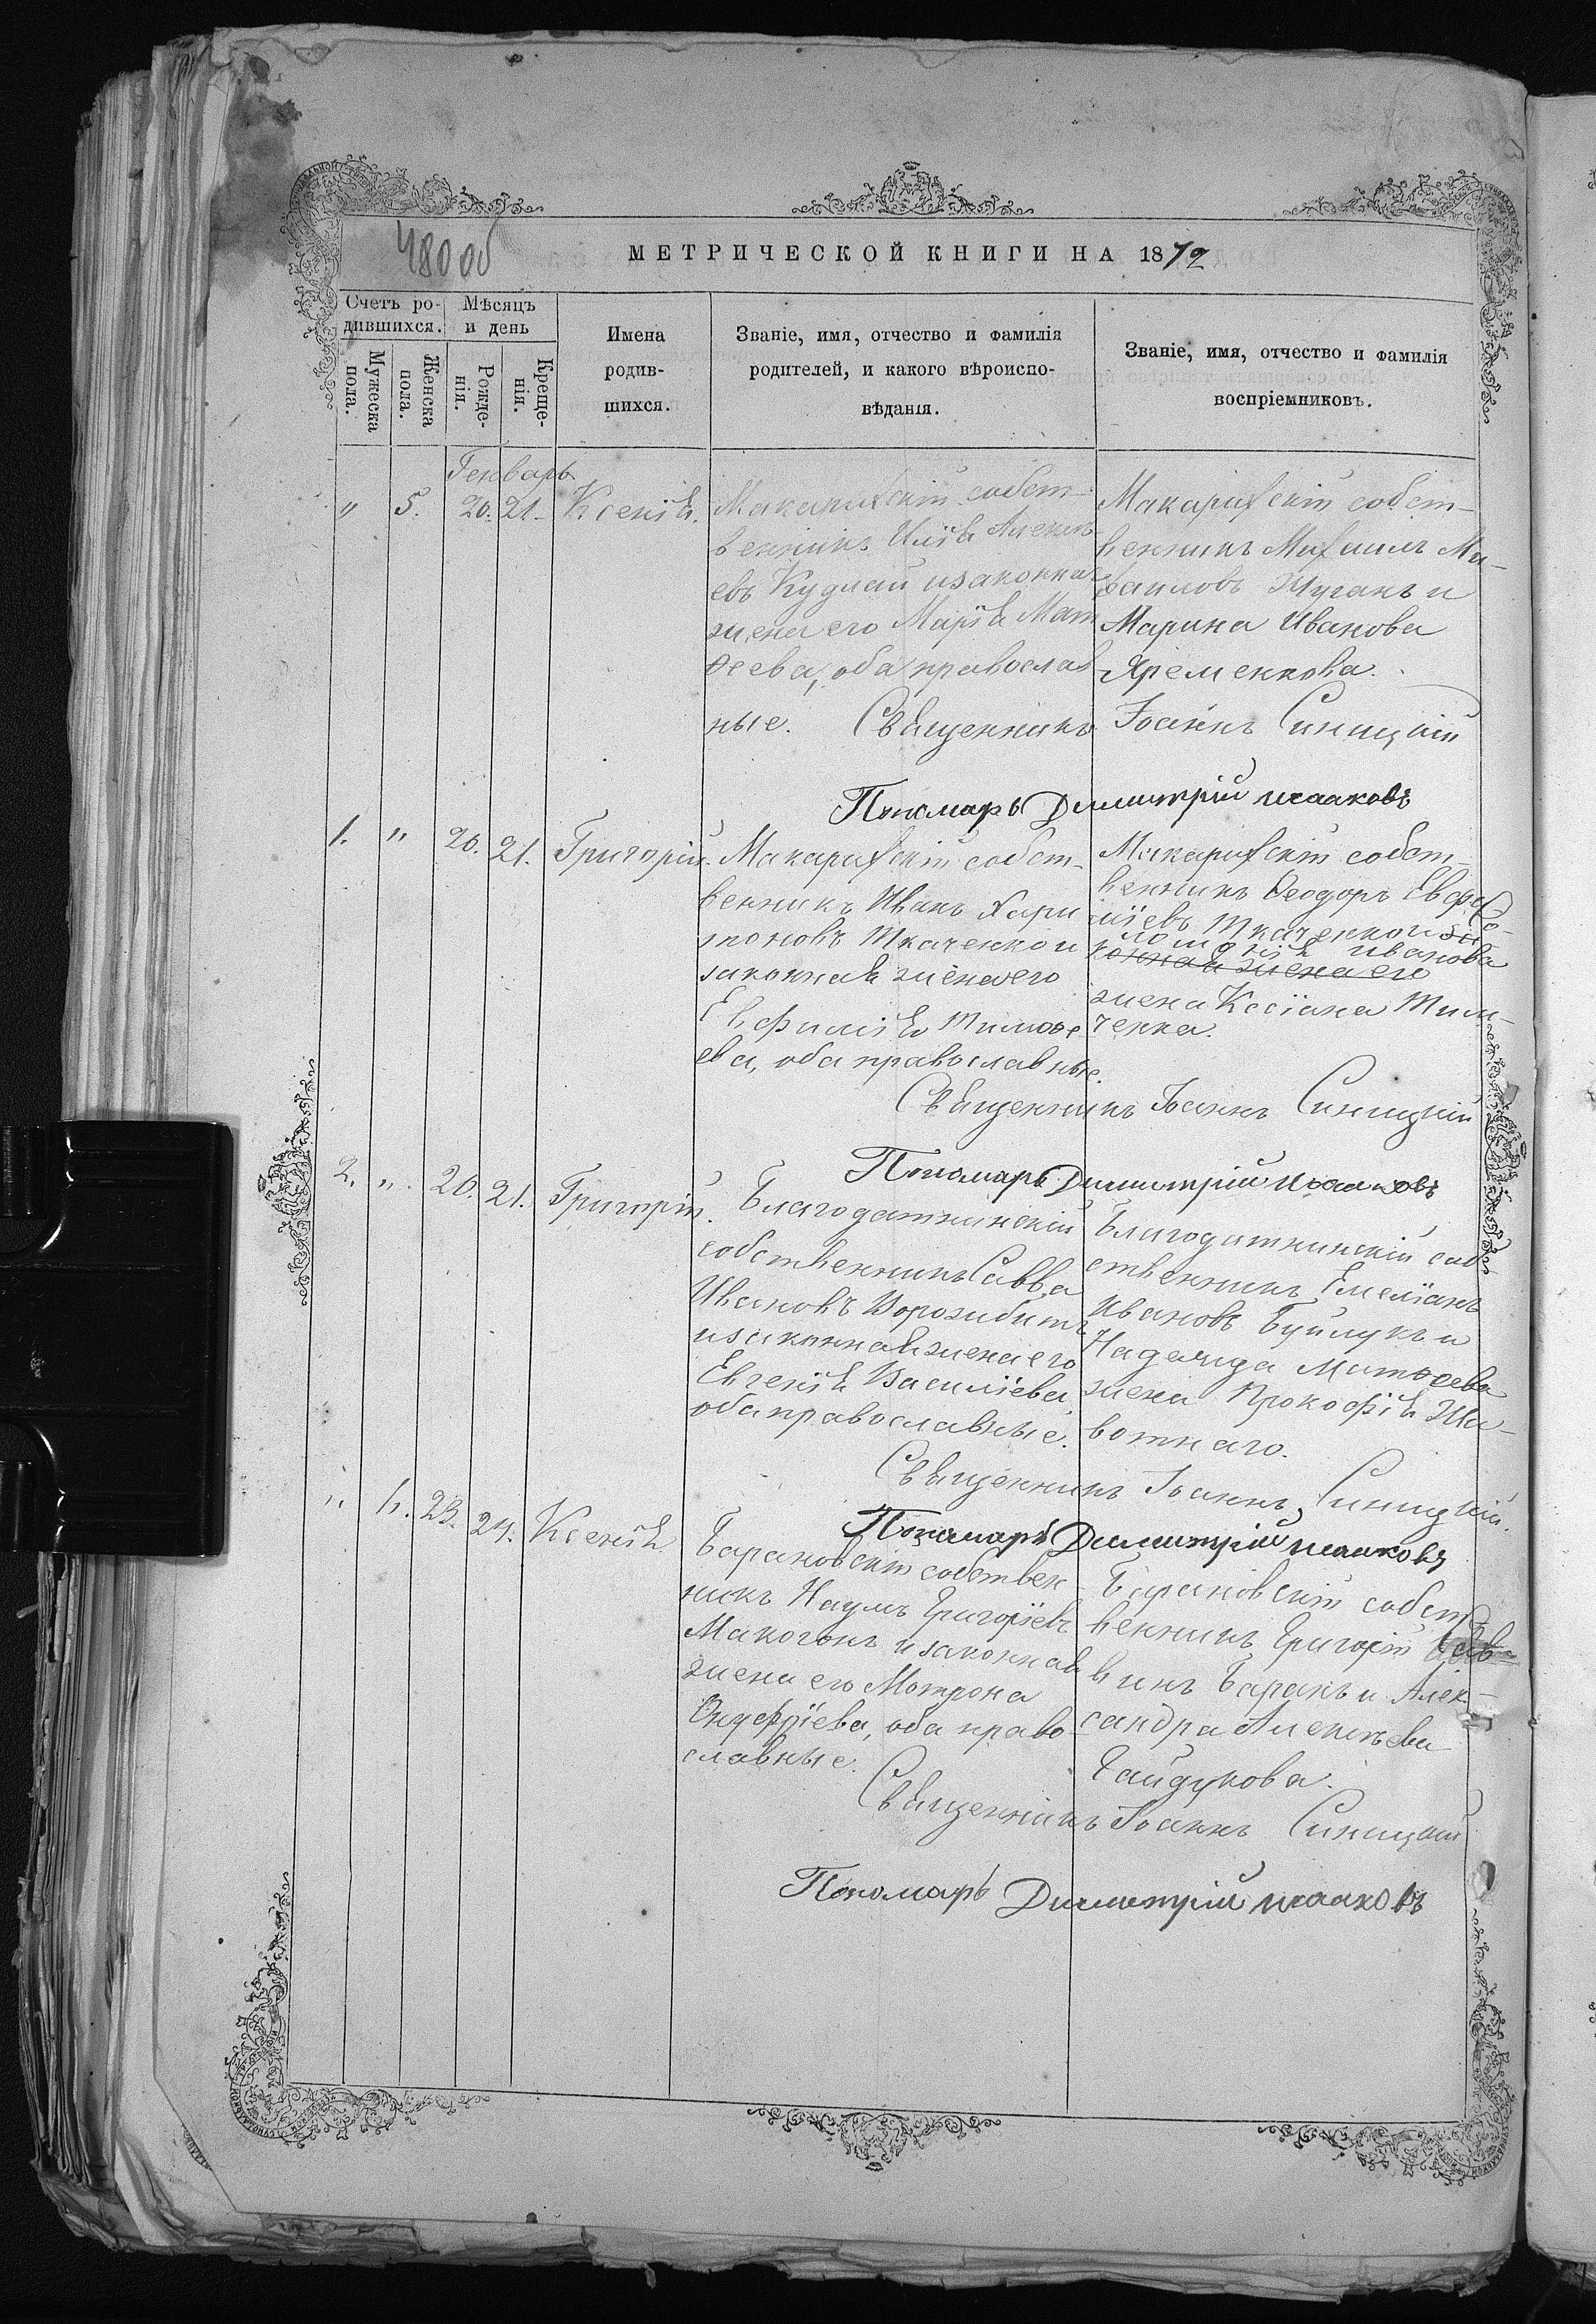 480 об
МЕТРИЧЕСКОЙ КНИГИ НА 1872
Счетъ ро-
дившихся.
Мѣсяцъ
и день
Мужеска
пола.
Женска
пола.
Рожде-
нія.
Креще-
нія.
Имена
родив-
шихся.
Званіе, имя, отчество и фамилія
родителей, и какого вѣроиспо-
вѣданія.
Званіе, имя, отчество и фамилія
воспріемниковъ.
Генварь
" 5. 20. 21. Ксенія.
Макарихскій собст-
венникъ Илія Алексѣ
евъ Кудлай и законная
жена его Марія Мат
ѳеева, оба православ
ные.
Макарихскій собст-
венникъ Михаилъ Ми-
хаиловъ Шуганъ и
Марина Иванова
Яременкова.
Священникъ Іоаннъ Синицкій
Пономарь Димитрій Исааковъ
1. " 20. 21. Григорій.
Макарихскій собст-
венникъ Иванъ Хари
тоновъ Ткаченко и
законная жена его
Евфимія Тимоѳе
ева, оба православные.
Макарихскій собст-
венникъ Ѳеодоръ Евфи
міевъ Ткаченко и за-
конная жена его
Соломонія Иванова
жена Косіана Тим-
ченка.
Священникъ Іоаннъ Синицкій
Пономарь Димитрій Исааковъ
2. " 20. 21. Григорій.
Благодатнинскій
собственникъ Савва
Ивановъ Ворожбитъ
и законная жена его
Евгенія Василіева
оба православные.
Благодатнинскій соб
ственникъ Емеліанъ
Ивановъ Буйлукъ и
Надежда Матѳеева
жена Прокофія Жи-
вотнаго.
Священникъ Іоаннъ Синицкій.
Пономарь Димитрій Исааковъ
" 6. 23. 24. Ксенія
Барановскій собствен
никъ Наумъ Григоріевъ
Макогонъ и законная
жена его Мотрона
Онуфріева, оба право
славные.
Барановскій собст-
венникъ Григорій Сав-
винъ Баранъ и Алек-
сандра Алексѣева
Гайдукова.
Священникъ Іоаннъ Синицкій
Пономарь Димитрій Исааковъ